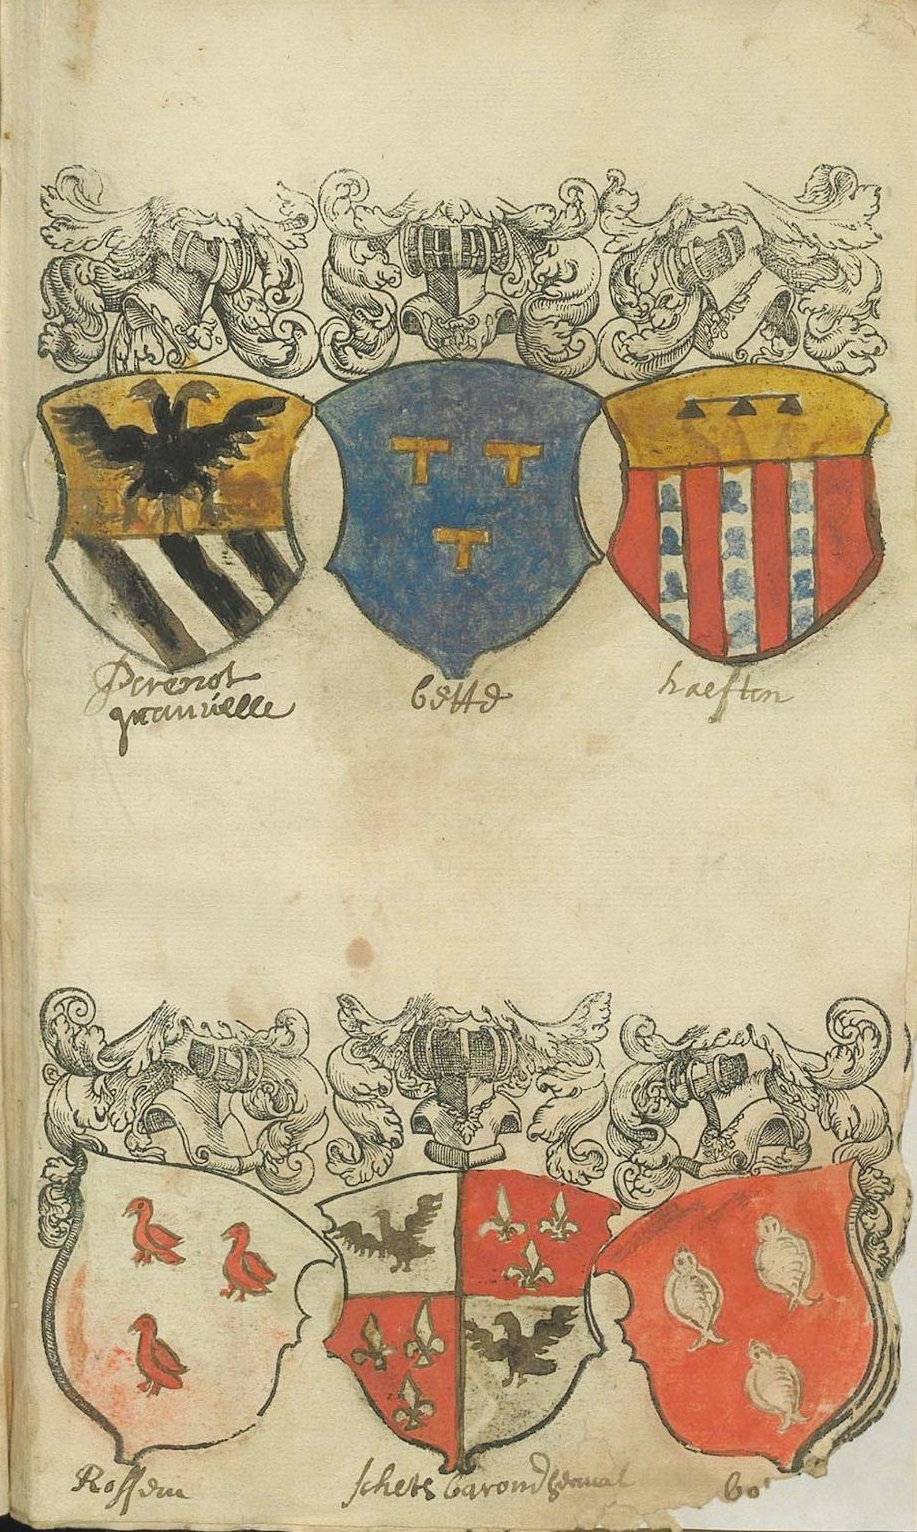 Perenot
granuelle
bette
haeften
Rossem
schets baron d
bo